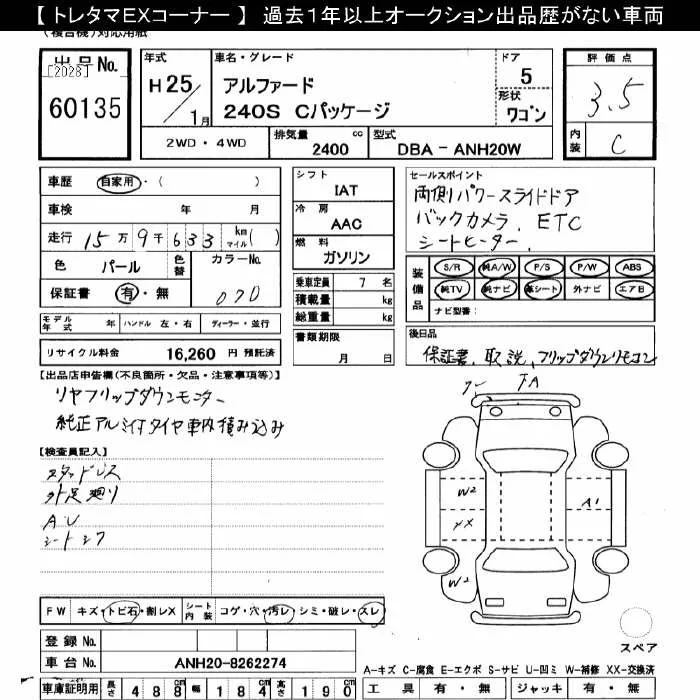 【 トレタマEXコーナー 】 過去１年以上オークション出品歴がない車両
(複合機)対応用紙
出品No.
[2028]
60135
年式
H25/1月
車名・グレード
アルファード
240S Cパッケージ
ドア
5
形状
ワゴン
2WD・4WD
排気量 2400 cc
型式 DBA - ANH20W
評価点
3.5
内装 C
車歴 自家用・( )
車検 年 月
走行 15万9千633 km マイル ( )
色 パール 色替
カラーNo.
070
保証書 有・無
モデル年式 年 ハンドル 左・右 ディーラー・並行
リサイクル料金 16,260 円 預託済
シフト
IAT
冷房
AAC
燃料
ガソリン
乗車定員 7 名
積載量 kg
総重量 kg
書類期限
月 日
セールスポイント
両側パワースライドドア
バックカメラ、ETC
シートヒーター、
装備品
S/R 純A/W P/S P/W ABS
純TV 純ナビ 革シート 外ナビ エアB
ナビ型番:
後日品
保証書、取説、フリップダウンリモコン
【出品店申告欄(不良箇所・欠品・注意事項等)】
リヤフリップダウンモニター
純正アルミ付タイヤ車内積み込み
【検査員記入】
スタッドレス
外足廻り
AU
シートシワ
FA
W2
XX
W2
A1
スペア
FW キズ・トビ石・割レX
シート内装 コゲ・穴・汚レ・シミ・破レ・スレ
登録No.
車台No. ANH20-8262274
車庫証明用 長さ 488 幅 184 高さ 190
A-キズ C-腐食 E-エクボ S-サビ U-凹ミ W-補修 XX-交換済
工具 有・無 ジャッキ 有・無